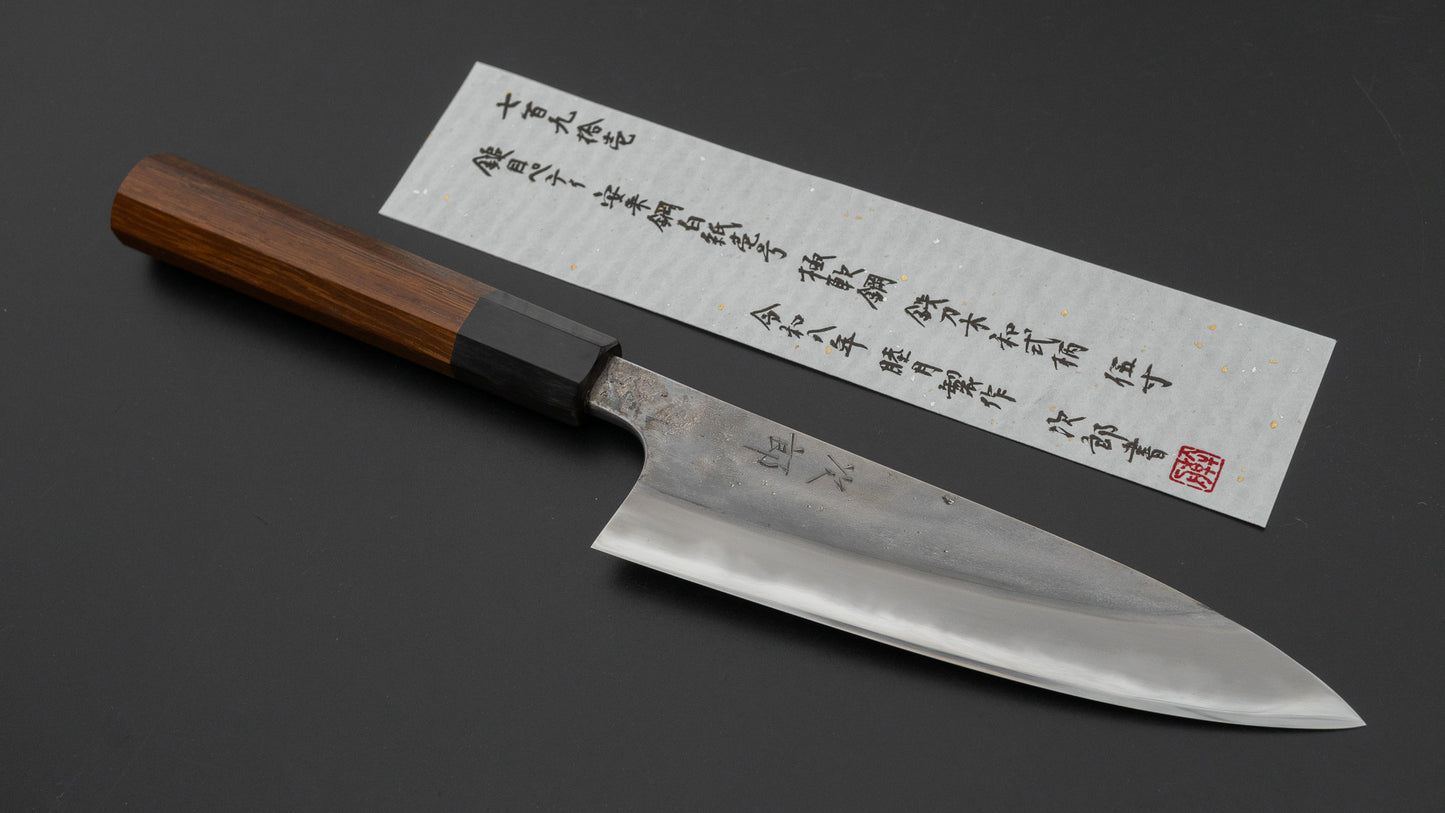 七百九拾壱
鎚目ペティ 安来鋼白紙壱号 極軟鋼 鉄刀木和式柄 伍寸
令和八年 睦月製作 次郎書